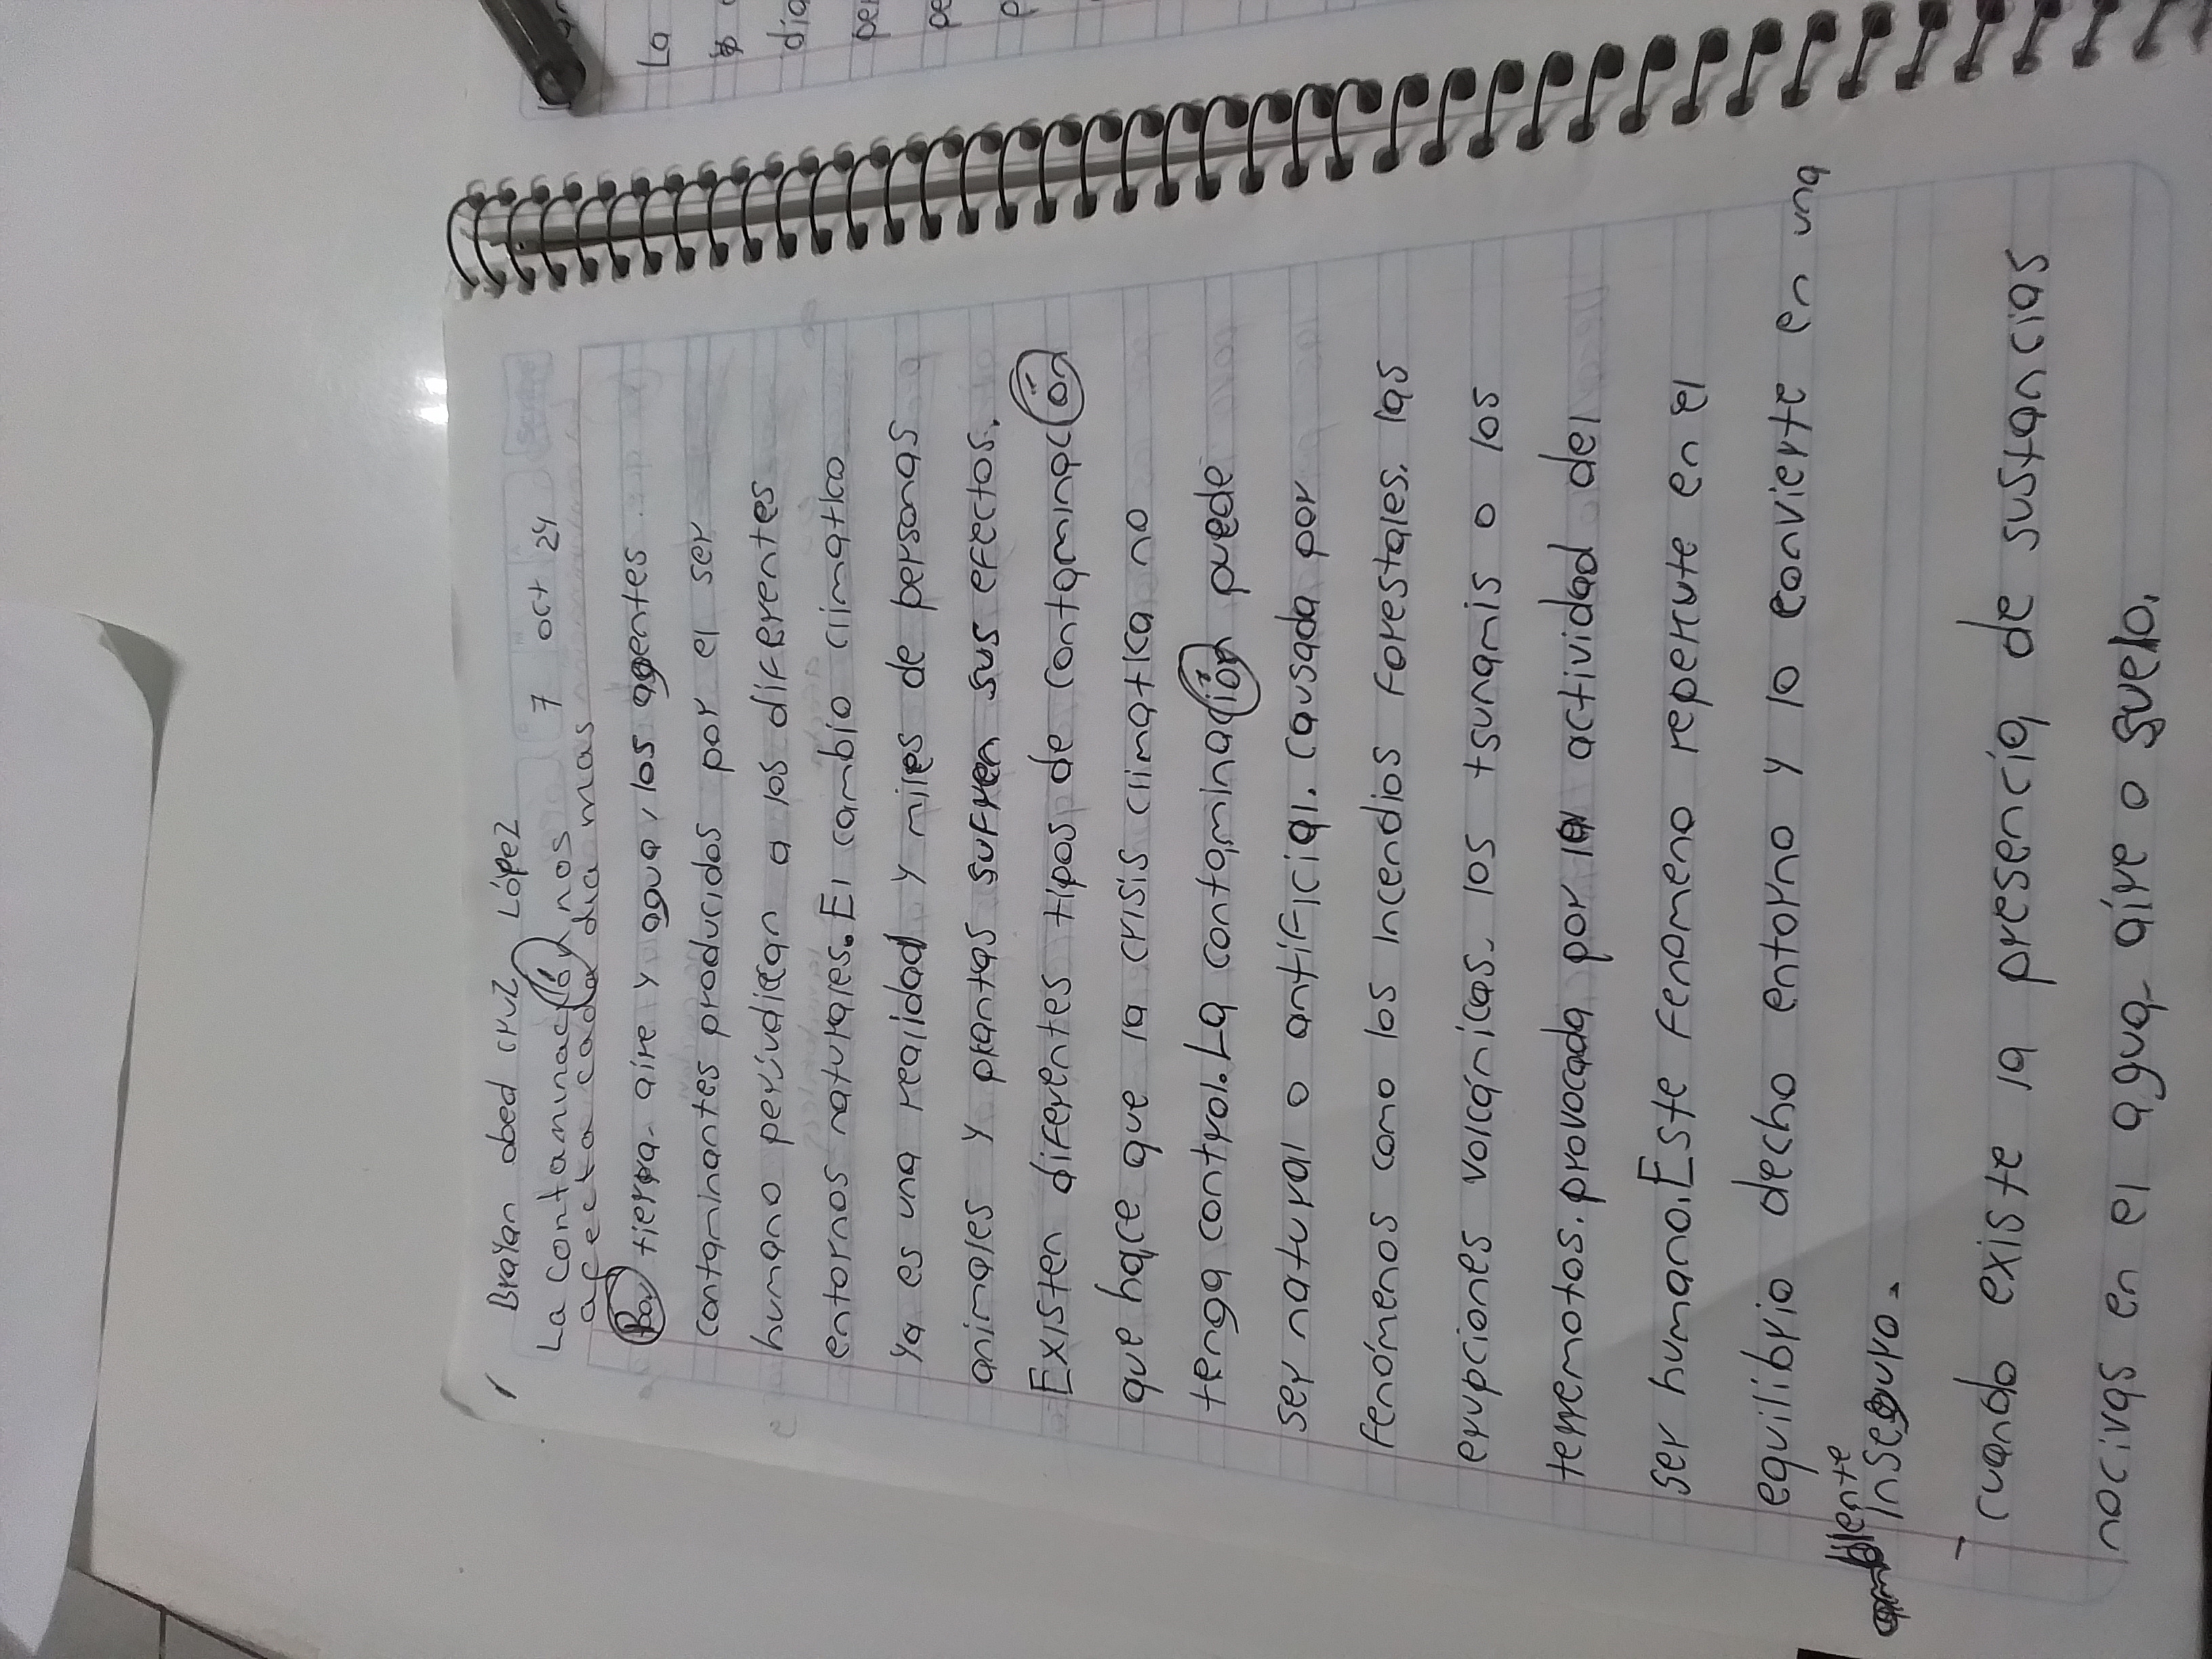 Brayan obed cruz López
7 oct 24
La contaminación nos
afecta cada dia mas
Por tierra. aire y agua, los agentes
contaminantes producidos por el ser
humano perjudican a los diferentes
entornos naturales. El cambio climatico
ya es una realidad y miles de personas
animales y plantas sufren sus efectos.
Existen diferentes tipos de contaminación
que hace que la crisis climatica no
tenga control. La contaminación puede
ser natural o artificial. causada por
fenómenos como los incendios forestales. las
erupciones volcánicas. los tsunamis o los
terremotos. provocada por la actividad del
ser humano. Este fenomeno reperute en el
equilibrio decho entorno y lo convierte en una
ambiente
inseguro.
cuando existe la presencia de sustancias
nocivas en el agua, aire o suelo.
La
dia
per
pe